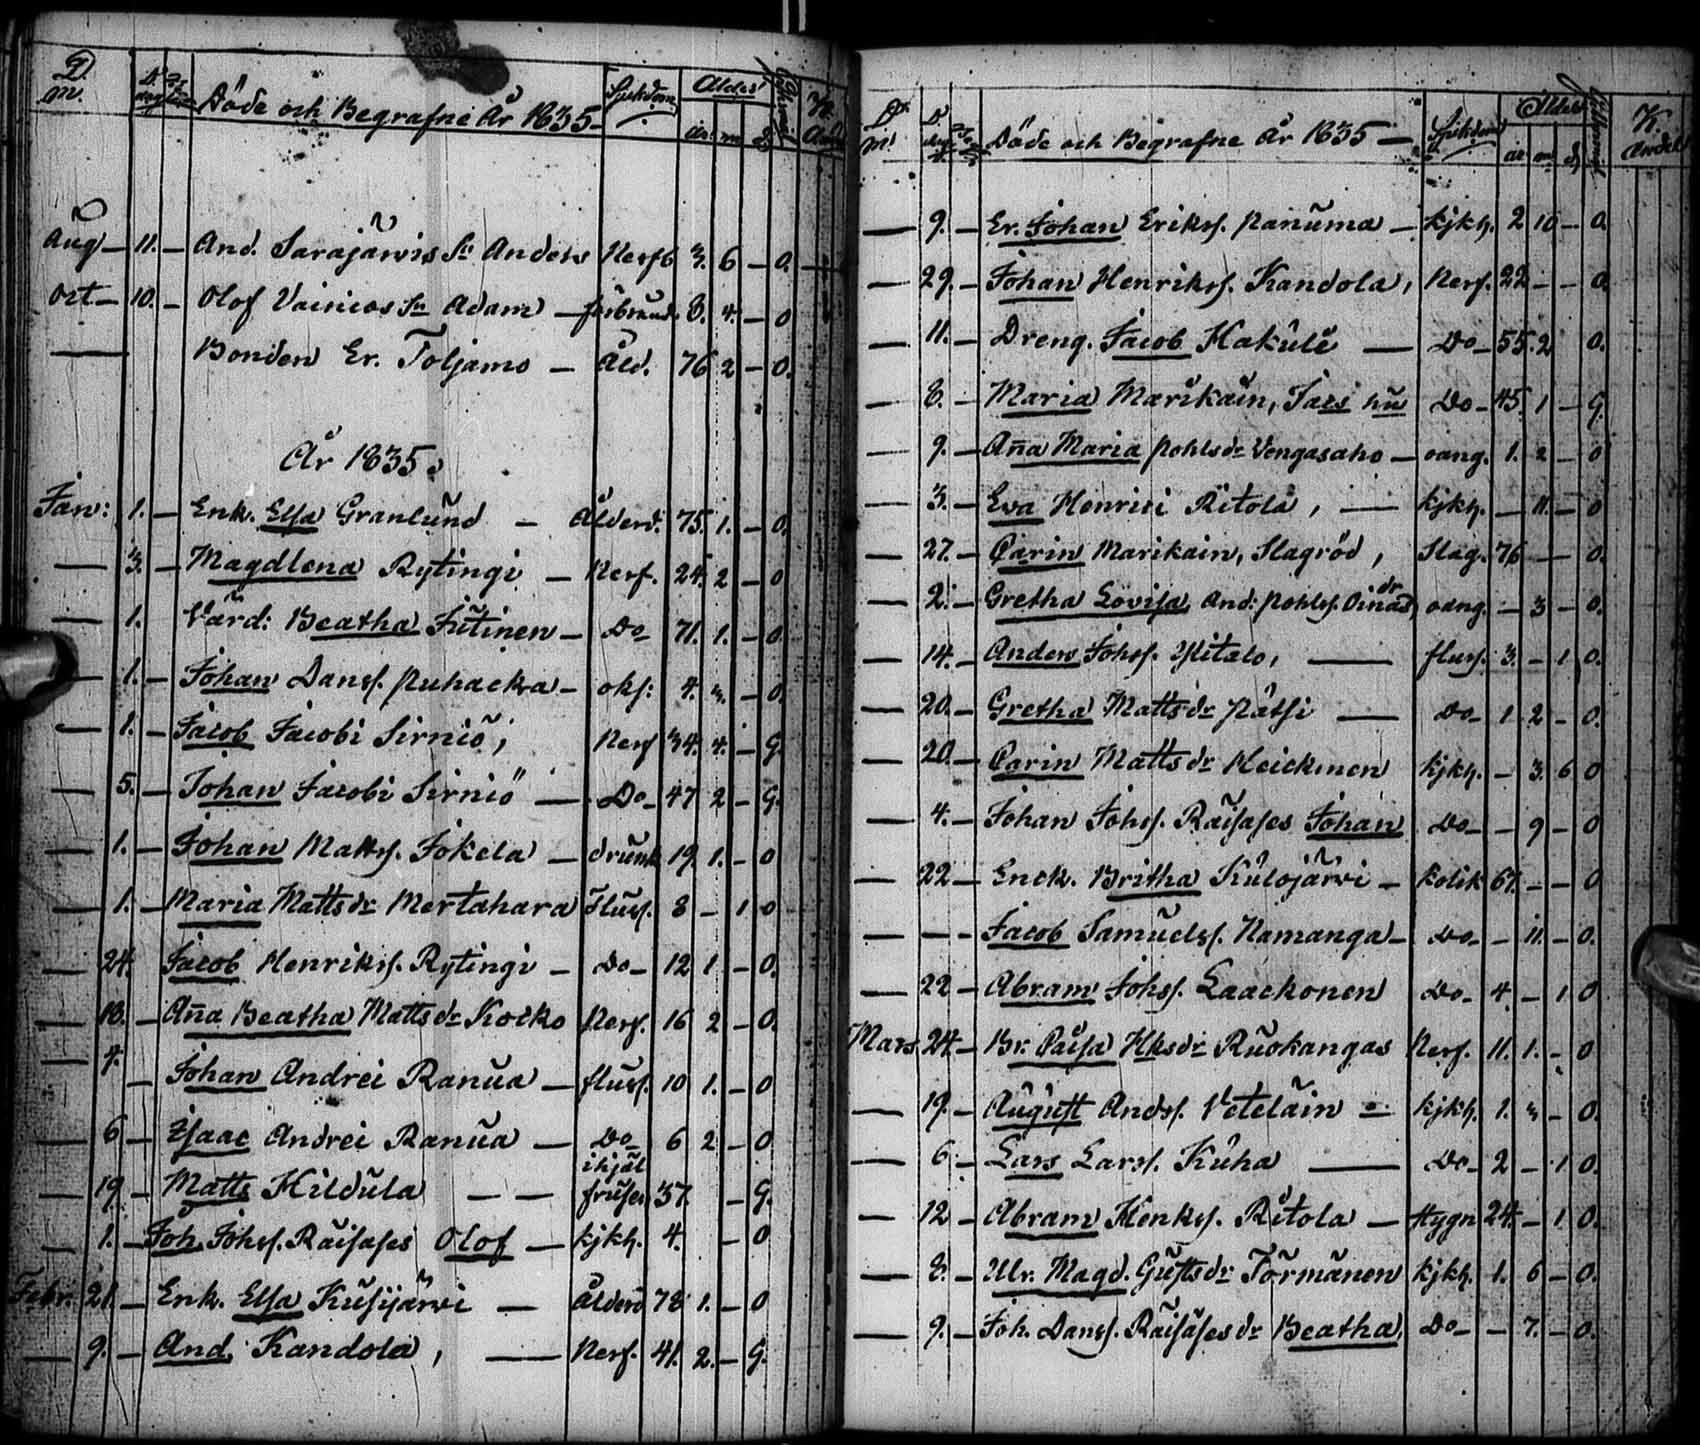 D. m. D: dag Döde och Begrafne År 1835 Sjukdom Ålder
år m d
Aug — 11. — And. Sarajärvis Sn Anders Nerff 3. 6 — 0.
Oct — 10. — Olof Vainios Sn Adam — förbränd. 3. 4. — 0
— Bonden Er. Toljamo — Åld. 76 2 — 0.
År 1835.
Jan: 1. — Enk. Elsa Granlund — Ålderd. 75. 1. — 0.
— 3. — Magdlena Rytingi — Nerf. 24. 2 — 0
— 1. Värd: Beatha Jutinen — Do 71. 1. — 0.
— 1. — Johan Dans. Puhacka — oks: 4. 3. — 0
— 1. — Jacob Jacobi Sirniö, Nerf 34. 4. — G.
— 5. — Johan Jacobi Sirniö — Do 47 2 — G.
— 1. — Johan Matts. Jokela — drunk 19. 1. — 0
— 1. — Maria Mattsdr Mertahara Fluss. 8 — 1 0
— 24. Jacob Henriks. Rytingi — Do 12 1 — 0.
— 18. — Aña Beatha Mattsdr Kocko Nerf. 16 2 — 0.
— 4. — Johan Andrei Ranua — fluss. 10 1. — 0
— 6 — Isaac Andrei Ranua — Do 6 2 — 0
— 19 — Matts Hildula — — ihjäl frusen 37. — G.
— 1. — Joh. Johs. Raisases Olof — kjkh. 4. — 0
Febr. 21. — Enk. Elsa Kusijärvi — Ålderd 78 1. — 0
— 9. — And. Kandola, — Nerf. 41. 2. — G.
D. m. D: dag Döde och Begrafne År 1835 — Sjukdom Ålder
år m d
— 9. — Er. Johan Eriks. Panuma — kjkh. 2 10 — 0.
— 29. — Johan Henriks. Kandola, Nerf. 22 — — 0.
— 11. — Dreng. Jacob Hakule — Do 55. 2 0.
— 8. — Maria Marikain, Jacs hu Do 45. 1 — G.
— 9. — Aña Maria Pohlsdr Vengasaho — oang. 1. 2 — 0
— 3. — Eva Henrici Ritola, — kjkh. — 11. — 0
— 27. — Carin Marikain, Slagröd, Slag. 76 — — 0.
— 2. — Gretha Lovisa And: Pohls. Oinas dr, oang. — 3 — 0.
— 14. — Anders Johs. Ylitalo, — fluss. 3. — 1 0.
— 20. — Gretha Mattsdr Pätsi — Do 1 2 — 0.
— 20. — Carin Mattsdr Heickinen kjkh. — 3. 6 0
— 4. — Johan Johs. Raisases Johan Do — 9 — 0
— 22 — Enck. Britha Kulojärvi — Kolik 67. — — 0
— — — Jacob Samuels. Namanga — Do — 11. — 0.
— 22 — Abram Johs. Laackonen Do 4. — 1 0
Mars 24. — Br. Caisa Hksdr Ruokangas Nerf. 11. 1. — 0
— 19. — August Ands. Vetelain — kjkh. 1. 3 — 0.
— 6. — Lars Lars. Kuha — Do 2 — 1 0.
— 12 — Abram Henks. Ritola — Hygn 24. — 1 0.
— 8. — Ulr. Magd. Gustsdr Törmänen kjkh. 1. 6 — 0.
— 9. — Joh. Dans. Raisasesdr Beatha, Do — 7. — 0.